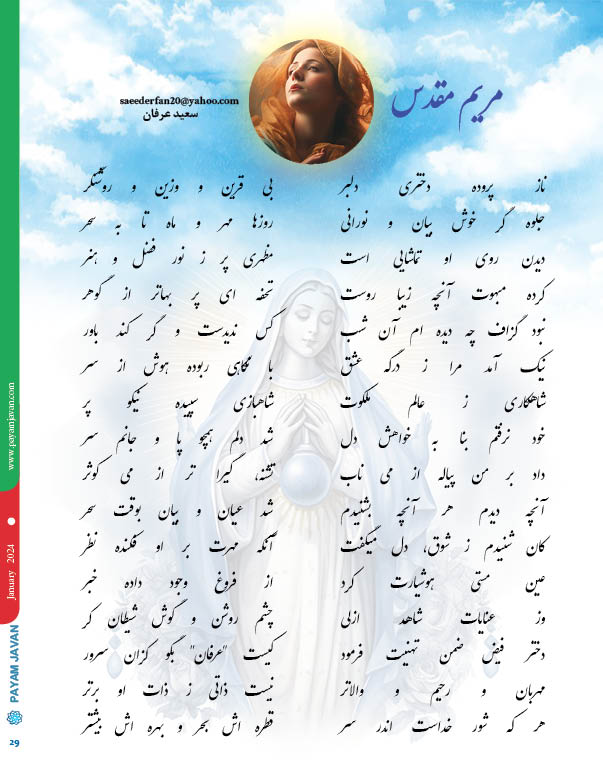 مریم مقدس
saeederfan20@yahoo.com
سعید عرفان
ناز پروده دختری دلبر
بی قرین و وزین و روشنگر
جلوه گر خوش بیان و نورانی
روزها مهر و ماه تا به سحر
دیدن روی او تماشایی است
مظهری پر ز نور فضل و هنر
کرده مبهوت آنچه زیبا روست
تحفه ای پر بهاتر از گوهر
نبود گزاف چه دیده ام آن شب
کس ندیدست و گر کند باور
نیک آمد مرا ز درگه عشق
با نگاهی ربوده هوش از سر
شاهکاری ز عالم ملکوت
شاهبازی سپیده نیکو پر
خود نرفتم بنا به خواهش دل
شد دلم همچو پا و جانم سر
داد بر من پیاله از می ناب
تشنه، گیرا تر از می کوثر
آنچه دیدم هر آنچه بشنیدم
شد عیان و بیان بوقت سحر
کان شنیدم ز شوق، دل میگفت
آنکه مهرت بر او فکنده نظر
عین مستی هوشیارت کرد
از فروغ وجود داده خبر
وز عنایات شاهد ازلی
چشم روشن و گوش شیطان کر
دختر فیض ضمن تهنیت فرمود
کیست "عرفان" بگو کزان سرور
مهربان و رحیم و والاتر
نیست ذاتی ز ذات او برتر
هر که شور خداست اندر سر
قطره اش بحر و بهره اش بیشتر
www.payamjavan.com
January 2024
PAYAM JAVAN
29